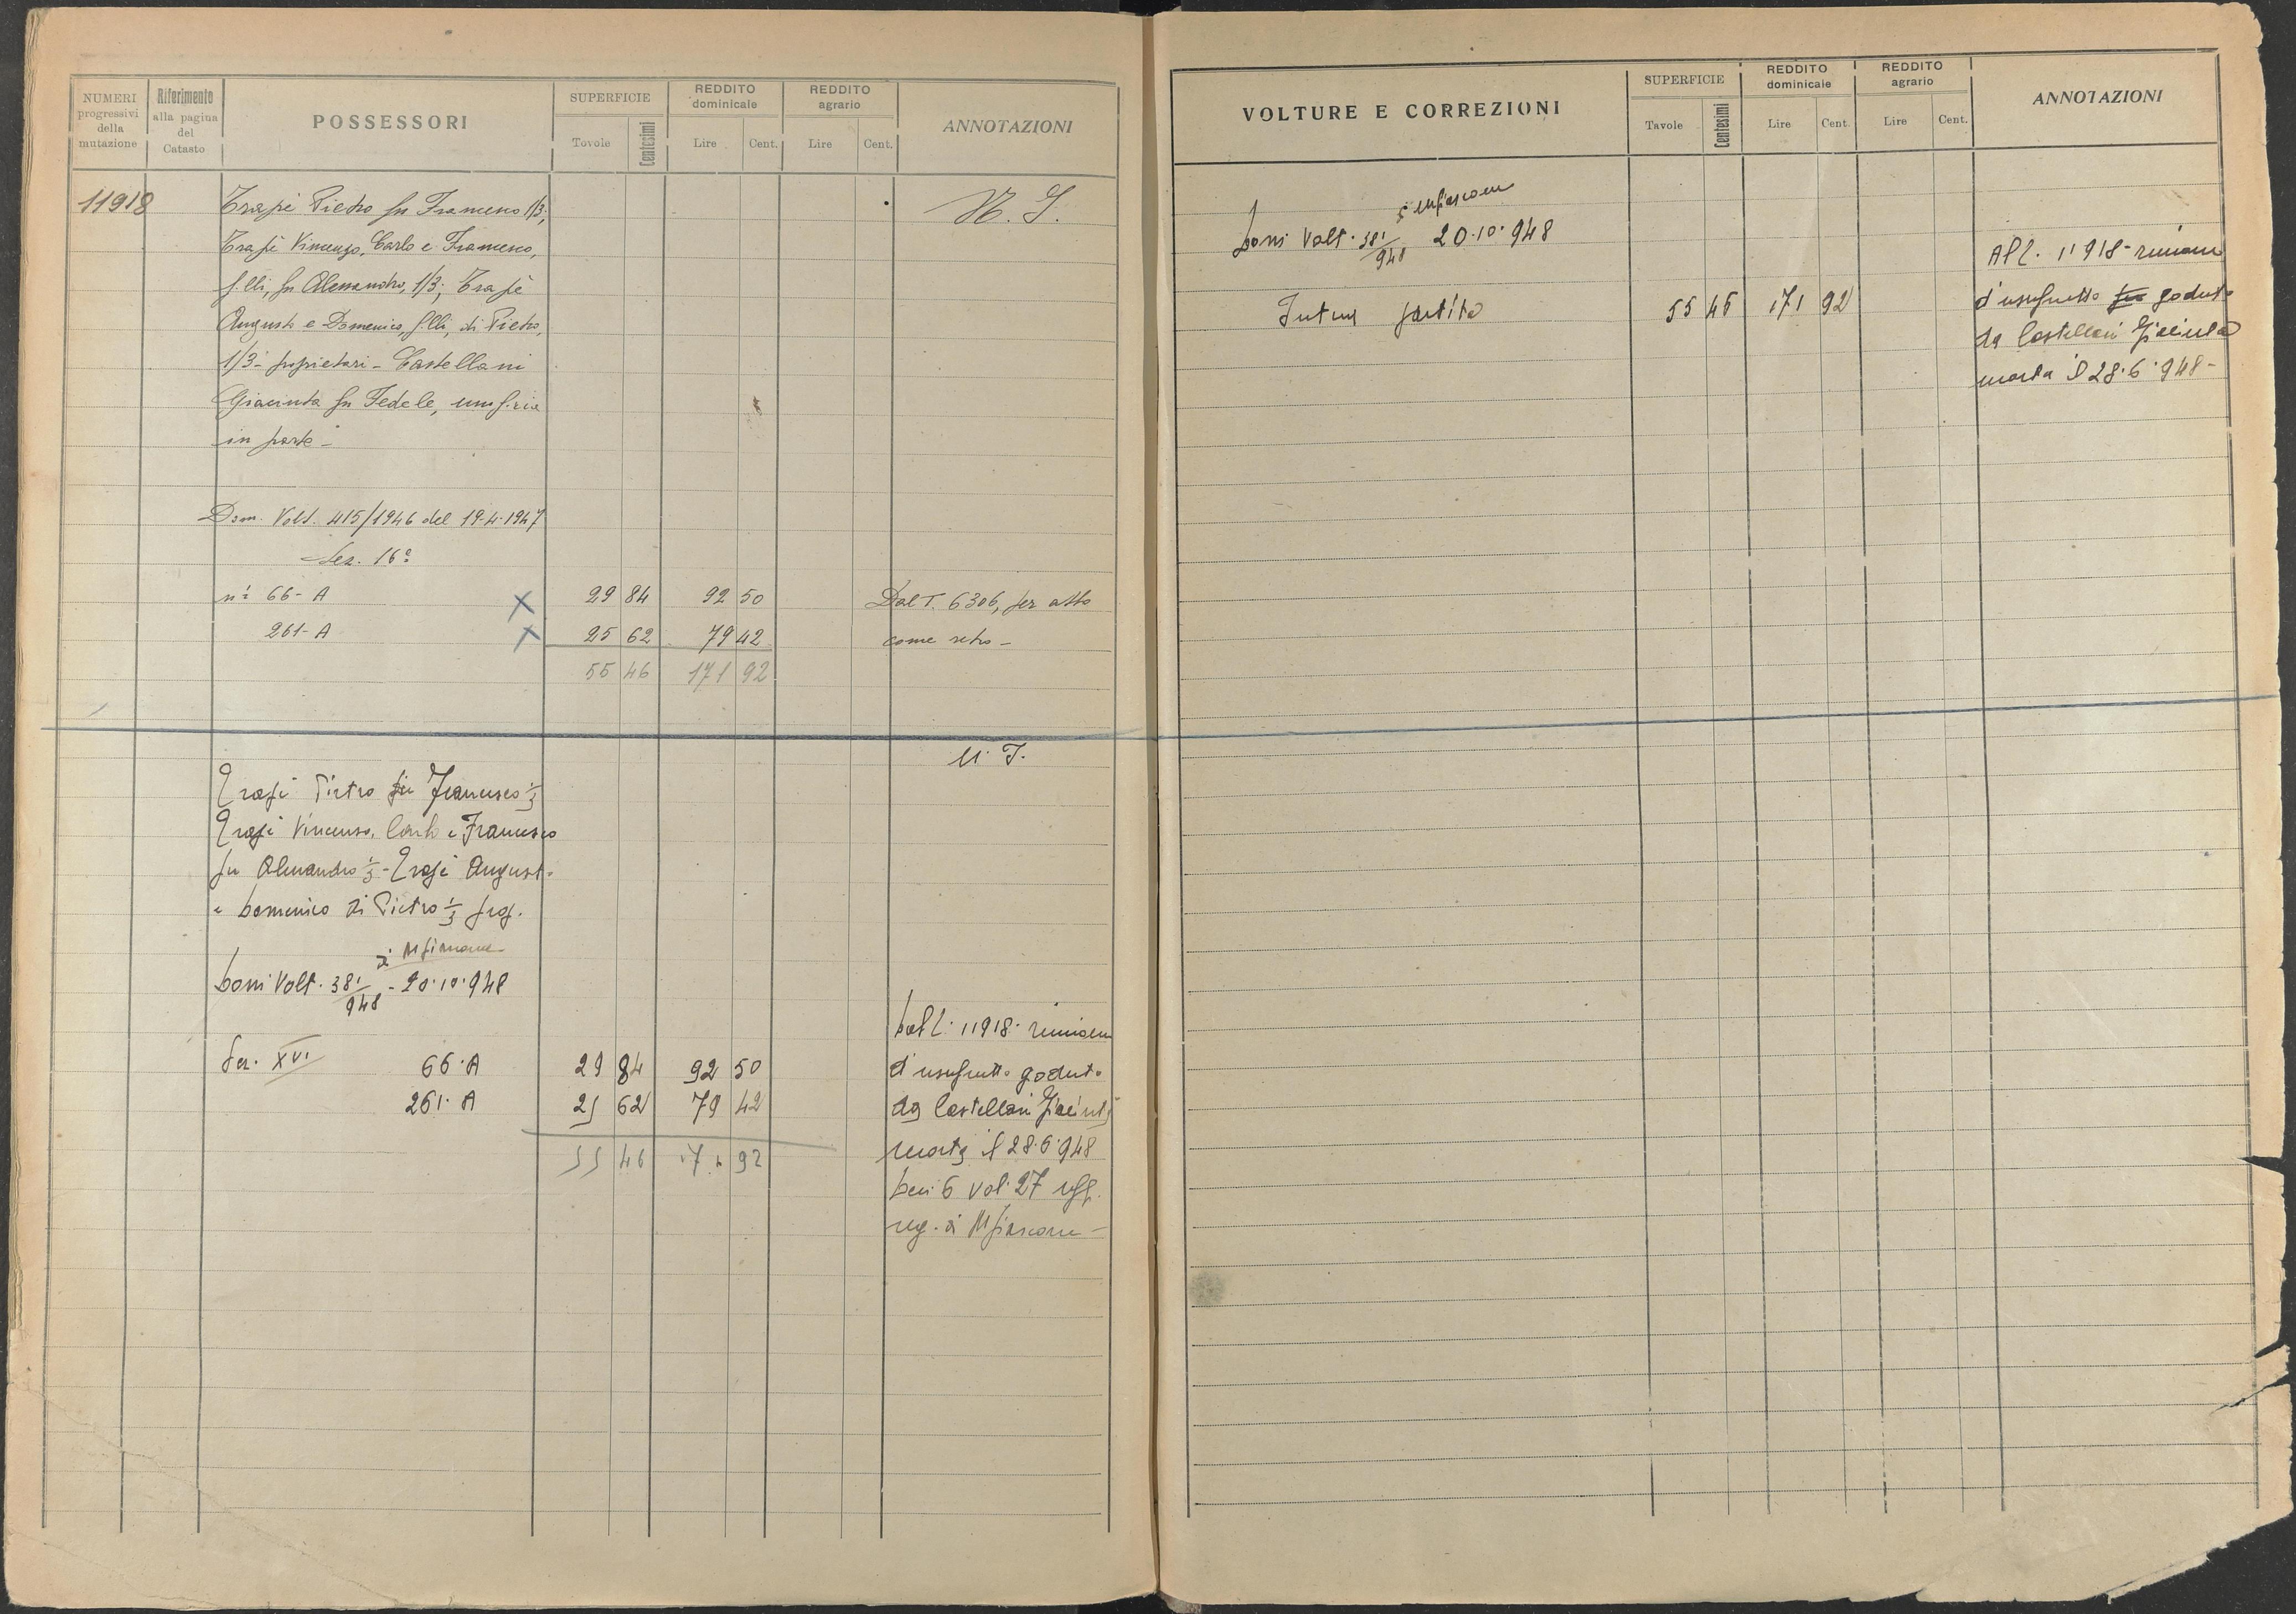 NUMERI progressivi della mutazione
Riferimento alla pagina del Catasto
POSSESSORI
SUPERFICIE
Tavole
Centesimi
REDDITO dominicale
Lire
Cent.
REDDITO agrario
Lire
Cent.
ANNOTAZIONI
11918
Trapè Pietro fu Francesco 1/3,
Trapè Vincenzo, Carlo e Francesco,
f.lli, fu Alessandro, 1/3; Trapè
Augusto e Domenico, f.lli, di Pietro,
1/3 - proprietari - Castellani
Giacinta fu Fedele,
in parte -
Dom. Volt. 415/1946 del 19-4-1947
Sez. 16ª
ni 66 - A 29 84 92 50 Dal T. 6306, per atto
261 - A 25 62 79 42 come retro -
55 46 171 92
Trapè Pietro fu Francesco 1/3
Trapè Vincenzo, Carlo e Francesco
fu Alessandro 1/3 - Trapè Augusto
e Domenico di Pietro 1/3 prop.
Dom Volt. 381/948 - 20.10.948
Sez. XVI 66. A 29 84 92 50
261. A 25 62 79 42
55 46 171 92
Dal 11918 riunione
d'usufrutto goduto
da Castellani Giacinta
morta il 28.6.948
Den. 6 vol. 27 uff.
reg. di Mfiascone -
VOLTURE E CORREZIONI
SUPERFICIE
Tavole
Centesimi
REDDITO dominicale
Lire
Cent.
REDDITO agrario
Lire
Cent.
ANNOTAZIONI
Dom Volt. 381/948 20.10.948
Intera partita 55 46 171 92
Al 11918 - riunione
d'usufrutto goduto
da Castellani Giacinta
morta il 28.6.948 -